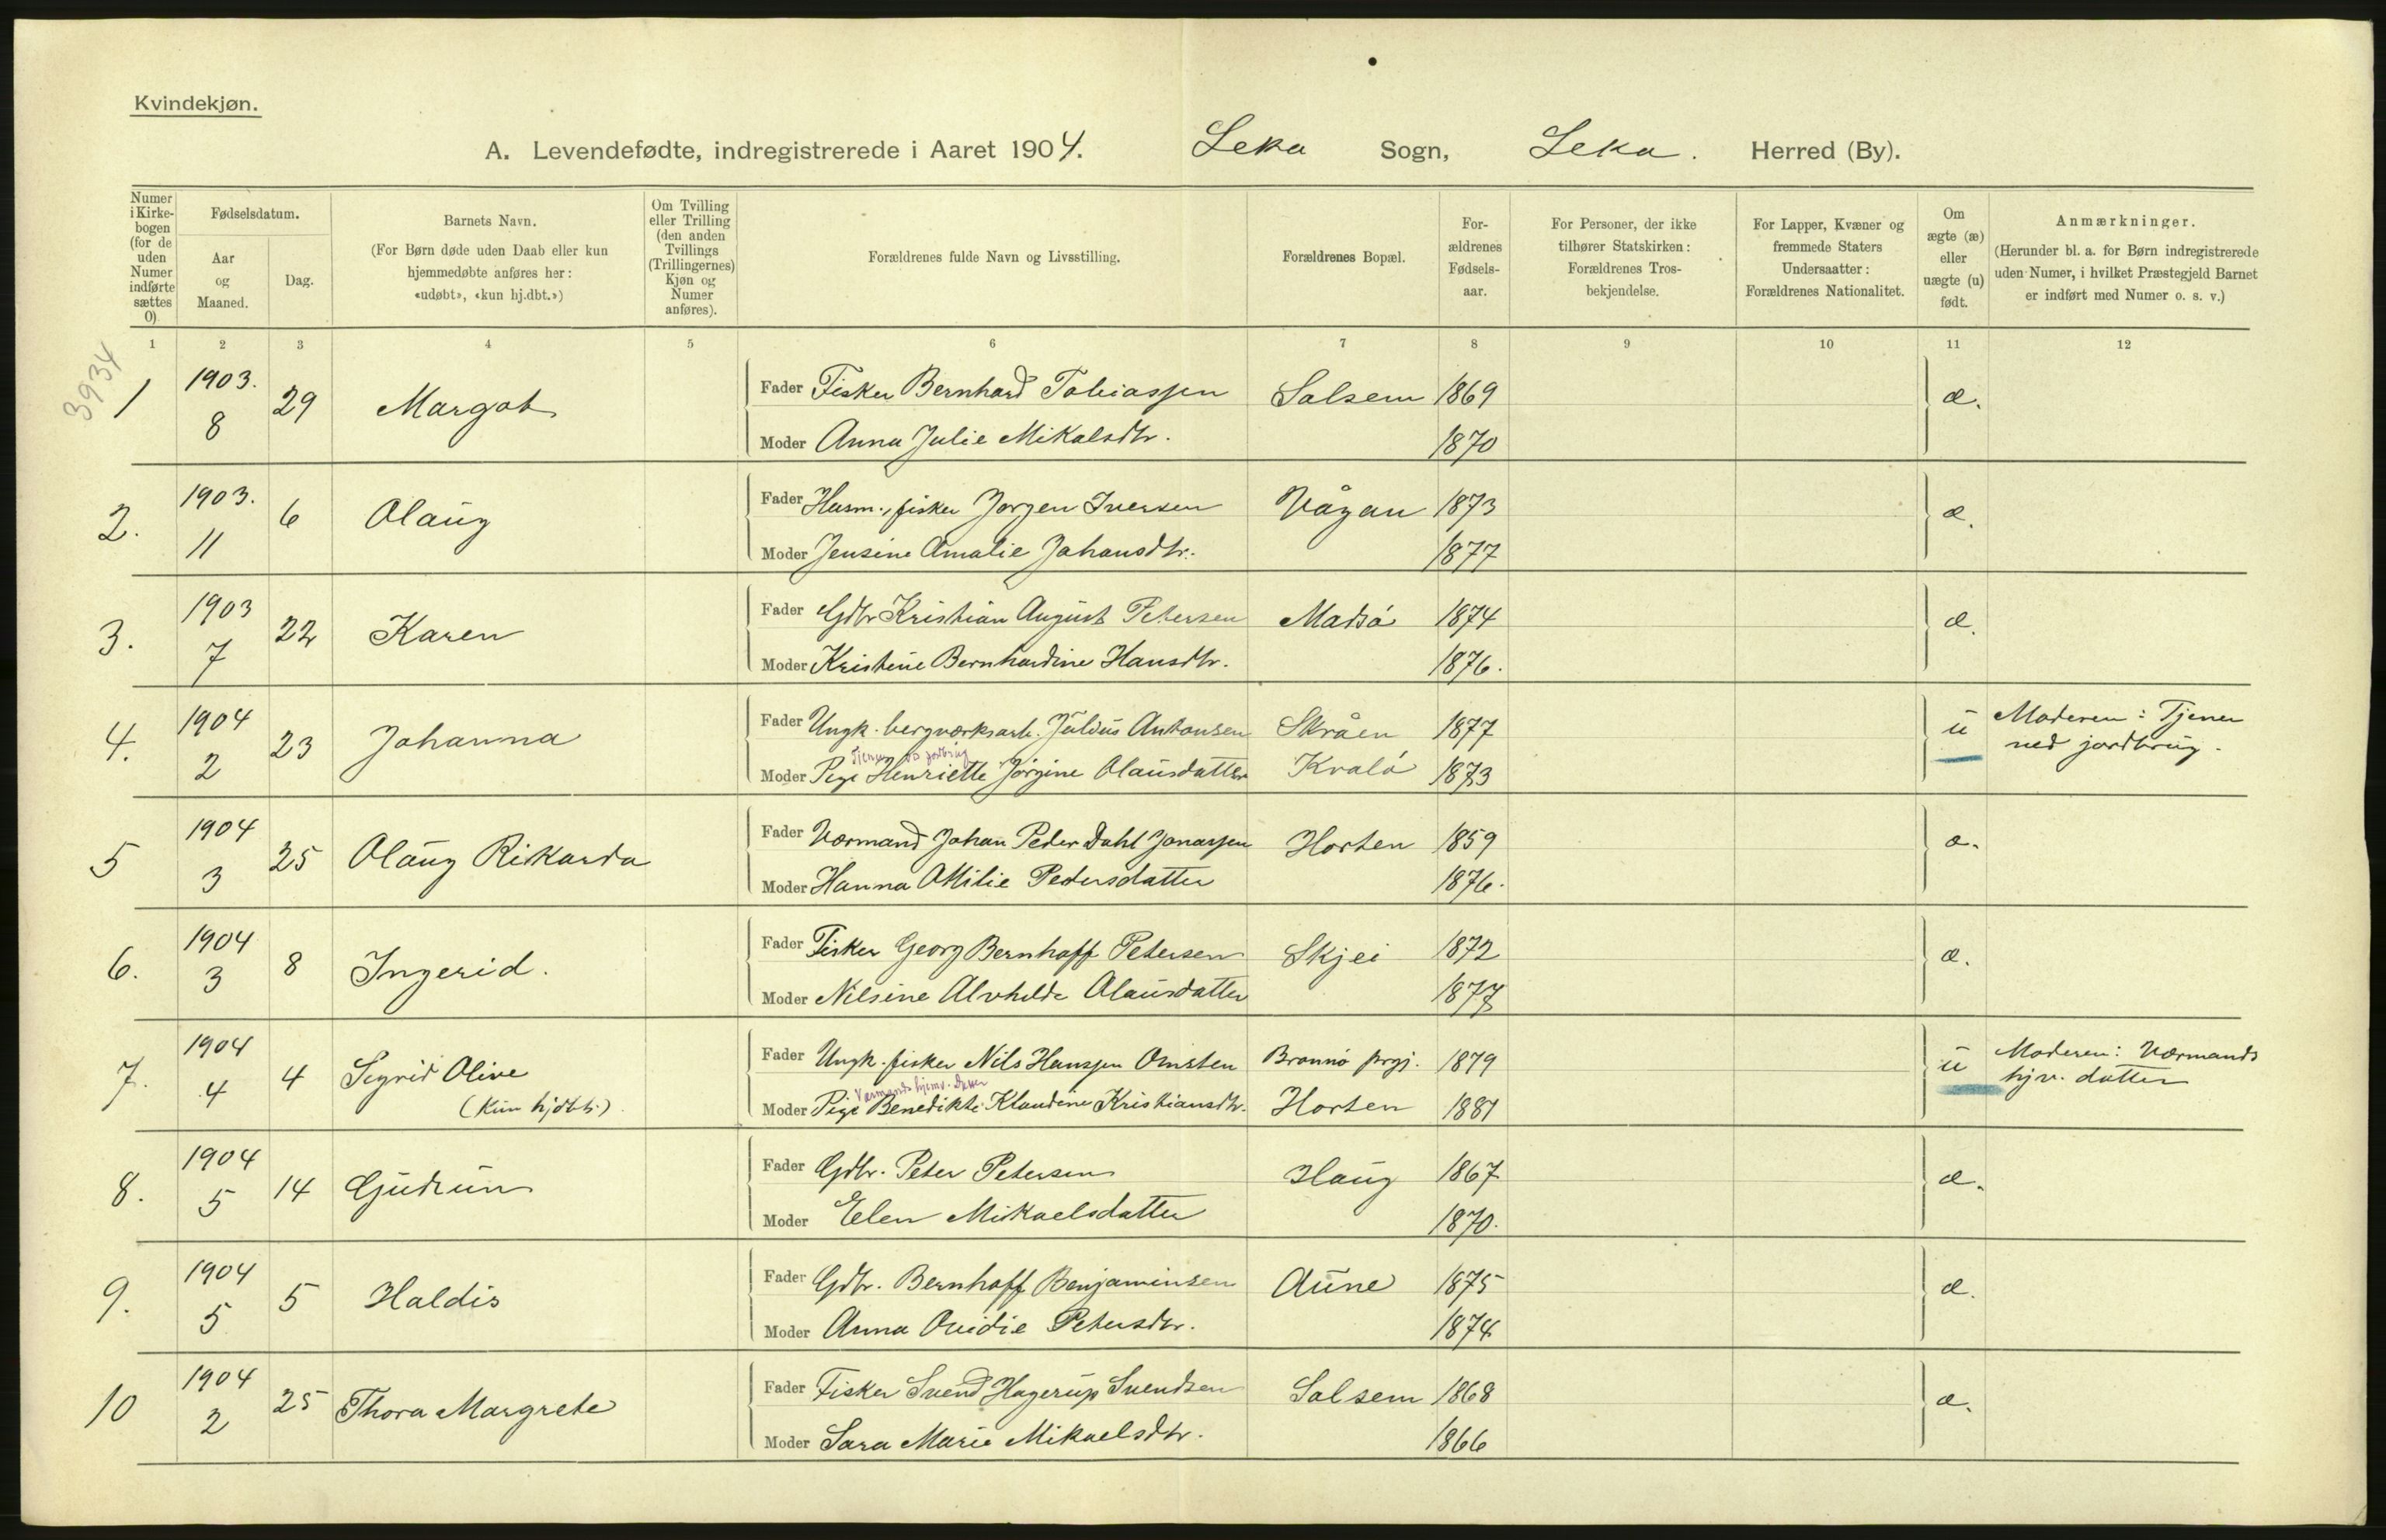 Kvindekjøn.
A. Levendefødte, indregistrerede i Aaret 1904. Leka Sogn, Leka. Herred (By).
Numer i Kirke-bogen (for de uden Numer indførte sættes 0)
Fødselsdatum.
Aar og Maaned.
Dag.
Barnets Navn.
(For Børn døde uden Daab eller kun hjemmedøbte anføres her: «udøbt», «kun hj.dbt.»)
Om Tvilling eller Trilling (den anden Tvillings (Trillingernes) Kjøn og Numer anføres).
Forældrenes fulde Navn og Livsstilling.
Forældrenes Bopæl.
For-ældrenes Fødsels-aar.
For Personer, der ikke tilhører Statskirken: Forældrenes Tros-bekjendelse.
For Lapper, Kvæner og fremmede Staters Undersaatter: Forældrenes Nationalitet.
Om ægte (æ) eller uægte (u) født.
Anmærkninger.
(Herunder bl. a. for Børn indregistrerede uden Numer, i hvilket Præstegjeld Barnet er indført med Numer o. s. v.)
1 2 3 4 5 6 7 8 9 10 11 12
3934
1 1903. 8 29 Margot Fader Fisker Bernhard Tobiassen Salsem 1869 æ.
Moder Anna Julie Mikalsdtr. 1870
2. 1903. 11 6 Olaug Fader Husm., fisker Jørgen Iversen Vågan 1873 æ.
Moder Jensine Amalie Johansdtr. 1877
3. 1903 7 22 Karen Fader Gdbr Kristian August Petersen Madsö 1874 æ.
Moder Kristine Bernhardine Hansdtr. 1876.
4. 1904 2 23 Johanna Fader Ungk. bergværksarb. Julius Antonsen Skråen 1877 u Moderen: Tjener
ved jordbrug.
Tjener v. jordbrug
Moder Pige Henriette Jørgine Olausdatter Kvalö 1873
5 1904 3 25 Olaug Rikarda Fader Vormand Johan Peder Dahl Jonassen Horten 1859 æ.
Moder Hanna Otilie Pedersdatter 1876.
6. 1904 3 8 Ingerid. Fader Fisker Georg Bernhoff Petersen Skjei 1872 æ.
Moder Nilsine Alvhilde Olausdatter 1877
7. 1904 4 4 Sigrid Olive Fader Ungk. fisker Nils Hanssen Omsten Brønnö prgj. 1879 u Moderen: Vormands
hjv. datter
(Kun hjdbt.)
Vormands hjemv. Datter
Moder Pige Benedikte Klaudine Kristiansdtr. Horten 1881
8. 1904 5 14 Gudrun Fader Gdbr. Peter Petersen Haug 1867 æ.
Moder Elen Mikaelsdatter 1870.
9. 1904 5 5 Haldis Fader Gdbr. Bernhoff Benjaminsen Aune 1875 æ.
Moder Anna Ovidie Petersdtr. 1874
10 1904 2 25 Thora Margrete Fader Fisker Svend Hagerup Svendsen Salsem 1868 æ.
Moder Sara Marie Mikaelsdtr. 1866